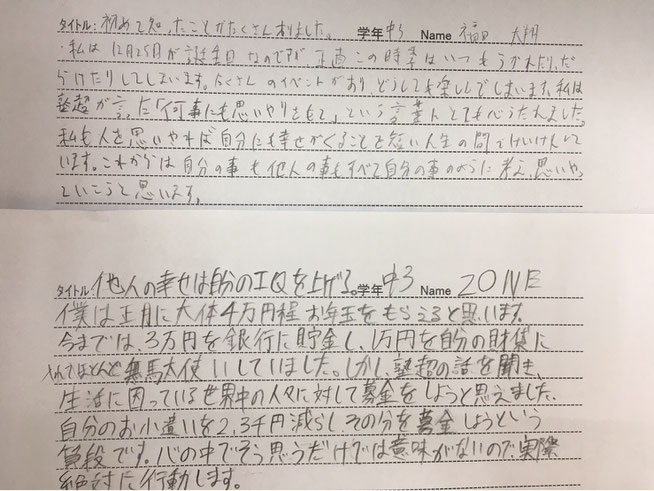 タイトル: 初めて知ったことがたくさんありました。 学年 中3 Name 福田 大翔
・私は12月25日が誕生日なのですが正直この時季はいつもうかれたり、だ
らけたりしてしまいます。たくさんのイベントがあり、どうしても楽しんでしまいます。私は
塾超が言った「何事にも思いやりをもて」という言葉にとても心うたれました。
私も人を思いやれば自分にも幸せがくることを短い人生の間でけいけんして
います。これからは自分の事も他人の事もすべて自分の事のように考え、思いやっ
ていこうと思います。
タイトル 他人の幸せは自分のIQを上げる。学年 中3 Name ZONE
僕は正月に大体4万円程お年玉をもらえると思います。
今までは、3万円を銀行に貯金し、1万円を自分の財布に
入れてほとんど無駄使いしていました。しかし、塾超の話を聞き、
生活に困っている世界中の人々に対して募金をしようと思えました。
自分のお小遣いを2,3千円減らしその分を募金しようという
算段です。心の中でそう思うだけでは意味がないので実際
絶対に行動します。